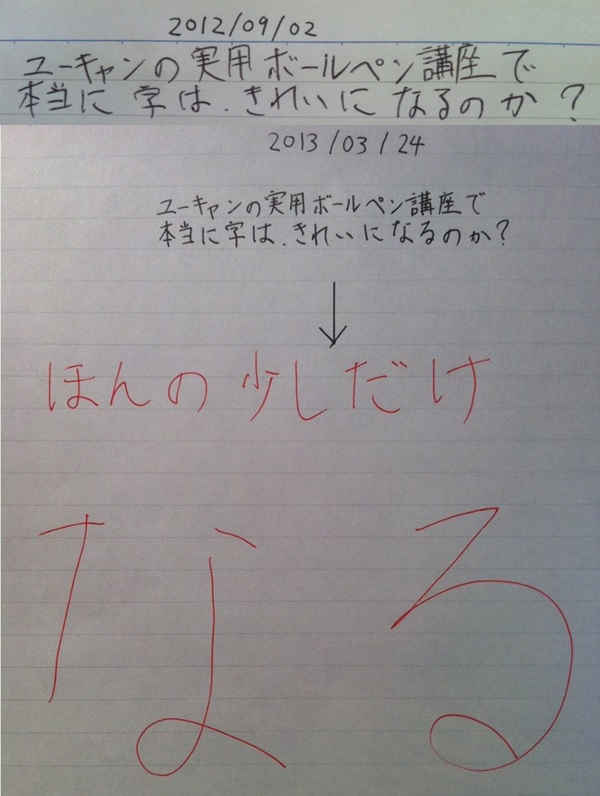 2012/09/02
ユーキャンの実用ボールペン講座で
本当に字は、きれいになるのか？
2013/03/24
ユーキャンの実用ボールペン講座で
本当に字は、きれいになるのか？
ほんの少しだけ
なる